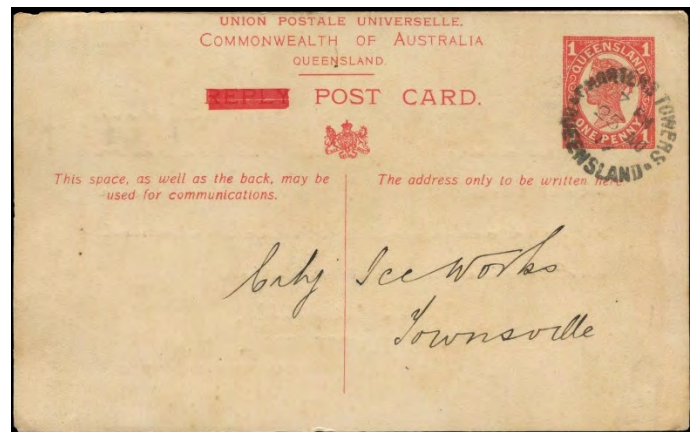 UNION POSTALE UNIVERSELLE.
COMMONWEALTH OF AUSTRALIA
QUEENSLAND.
REPLY POST CARD.
1 QUEENSLAND 1
1 ONE PENNY 1
CHARTERS TOWERS
QUEENSLAND
This space, as well as the back, may be
used for communications.
The address only to be written here
City Ice Works
Townsville